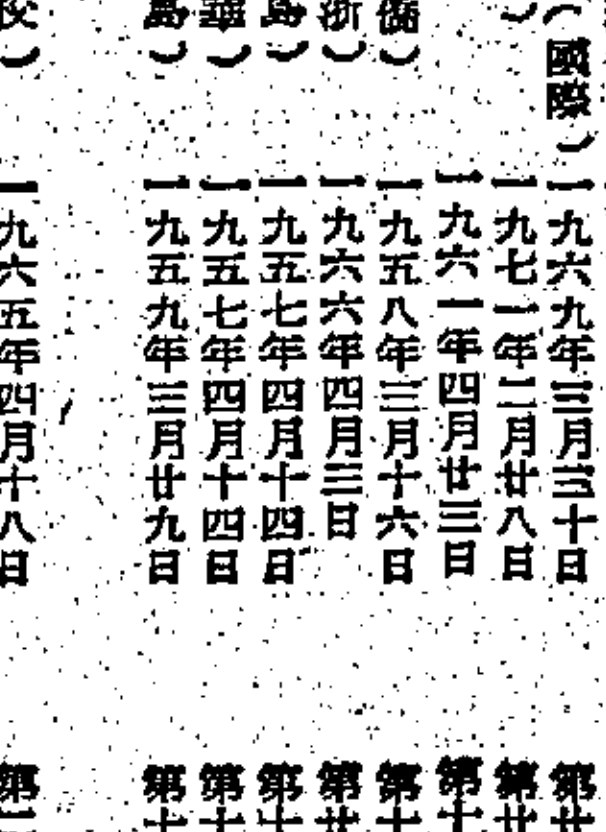 （國際）一九六九年三月三十日 第廿
）一九七一年二月廿八日 第廿
一九六一年四月廿三日 第十
僑）一九五八年三月十六日 第十
浙）一九六六年四月三日 第廿
島）一九五七年四月十四日 第十
華）一九五七年四月十四日 第十
島）一九五九年三月廿九日 第十
校）一九六五年四月十八日 第